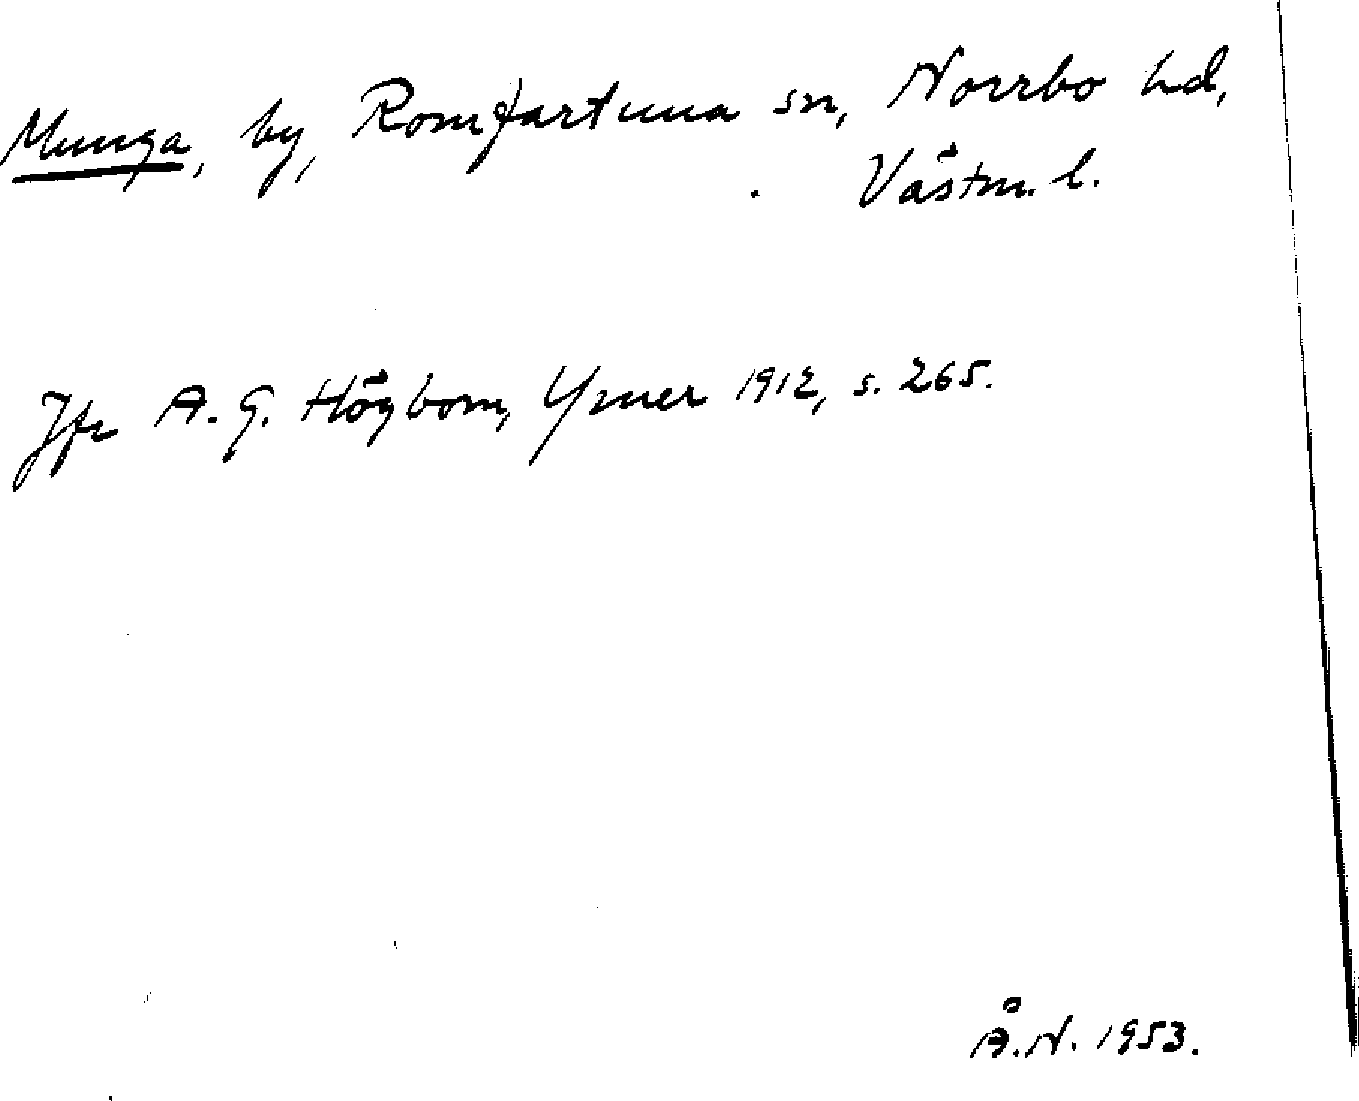 Munga, by, Romfartuna sn, Norrbo hd,
Västm. l.
Jfr A. G. Högbom, Ymer 1912, s. 265.
Å. N. 1953.